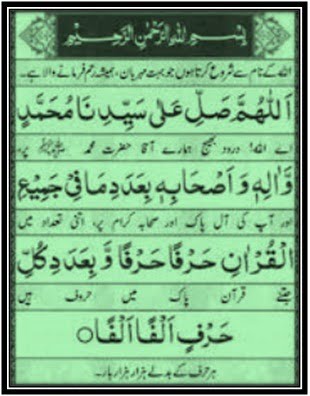 بِسْمِ اللهِ الرَّحْمٰنِ الرَّحِيْمِ
اللہ کے نام سے شروع کرتا ہوں جو بہت مہربان، ہمیشہ رحم فرمانے والا ہے۔
اَللّٰهُمَّ صَلِّ عَلٰى سَيِّدِنَا مُحَمَّدٍ
اے اللہ! درود بھیج ہمارے آقا حضرت محمد ﷺ پر،
وَّاٰلِهٖ وَاَصْحَابِهٖ بِعَدَدِ مَا فِيْ جَمِيْعِ
اور آپ کی آل پاک اور صحابہ کرام پر، اتنی تعداد میں
الْقُرْاٰنِ حَرْفًا حَرْفًا وَّ بِعَدَدِ كُلِّ
جتنے قرآن پاک میں حروف ہیں
حَرْفٍ اَلْفًا اَلْفًا○
ہر حرف کے بدلے ہزار ہزار بار۔